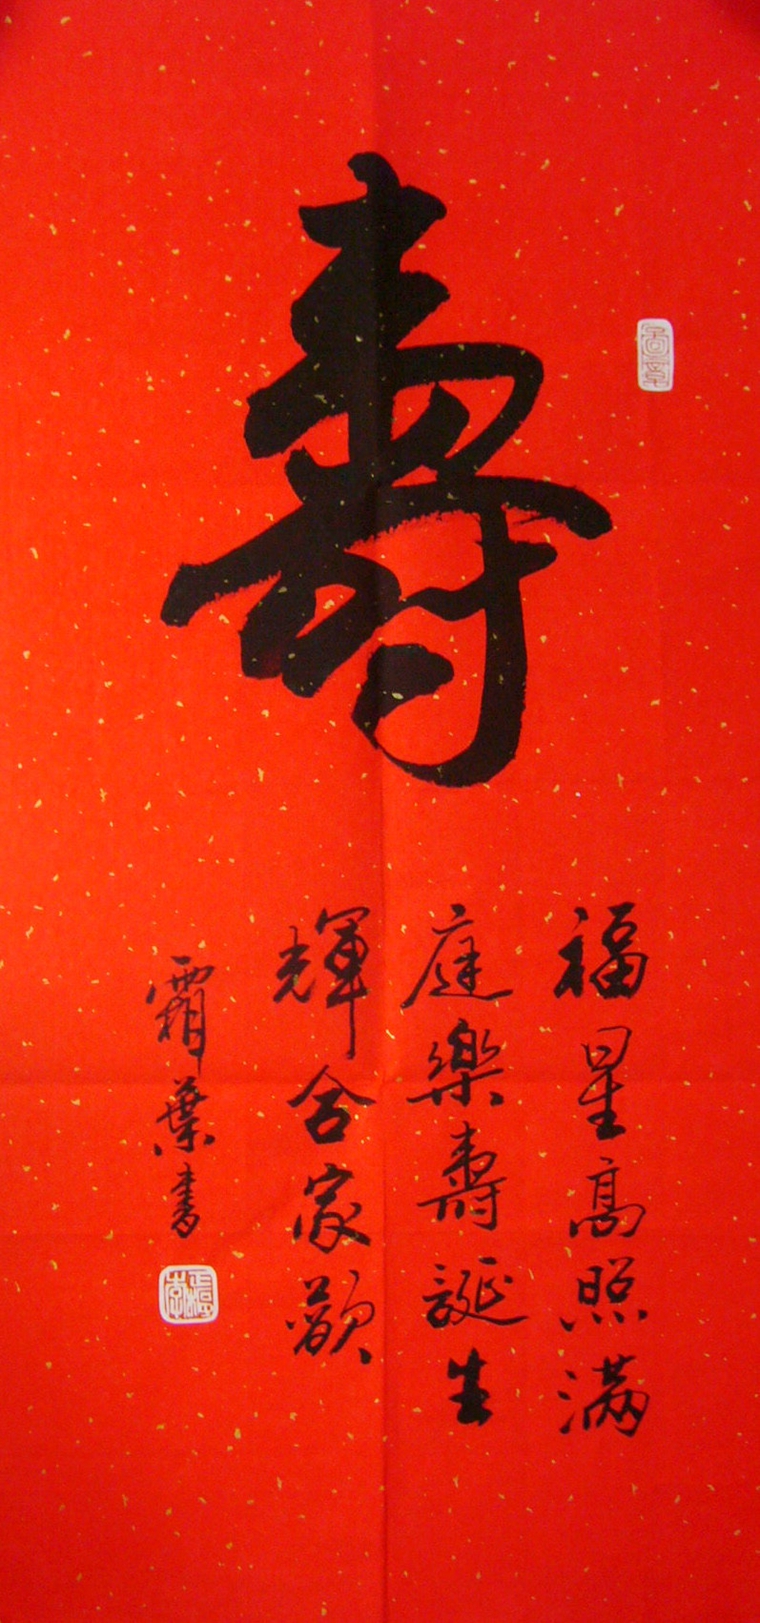 壽
福星高照滿
庭樂壽誕生
輝合家歡
霜葉書